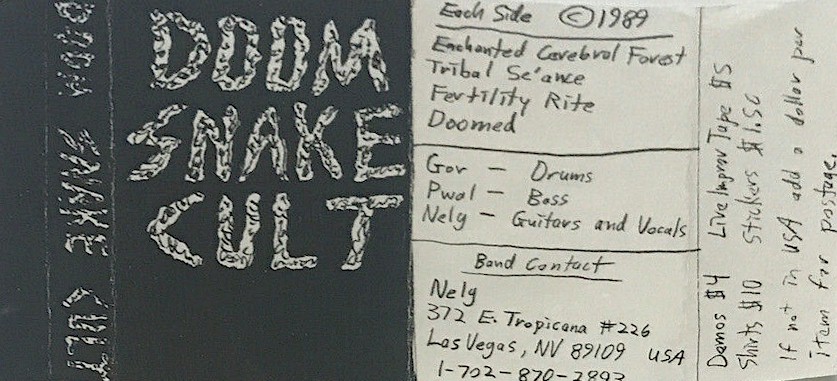 DOOM SNAKE CULT
DOOM
SNAKE
CULT
Each Side ©1989
Enchanted Cerebral Forest
Tribal Se'ance
Fertility Rite
Doomed
Gov - Drums
Pwal - Bass
Nely - Guitars and Vocals
Band Contact
Nely
372 E. Tropicana #226
Las Vegas, NV 89109 USA
1-702-870-2893
Demos $4 Live Improv Tape $5
Shirts $10 Stickers $1.50
If not in USA add a dollar per
item for postage.